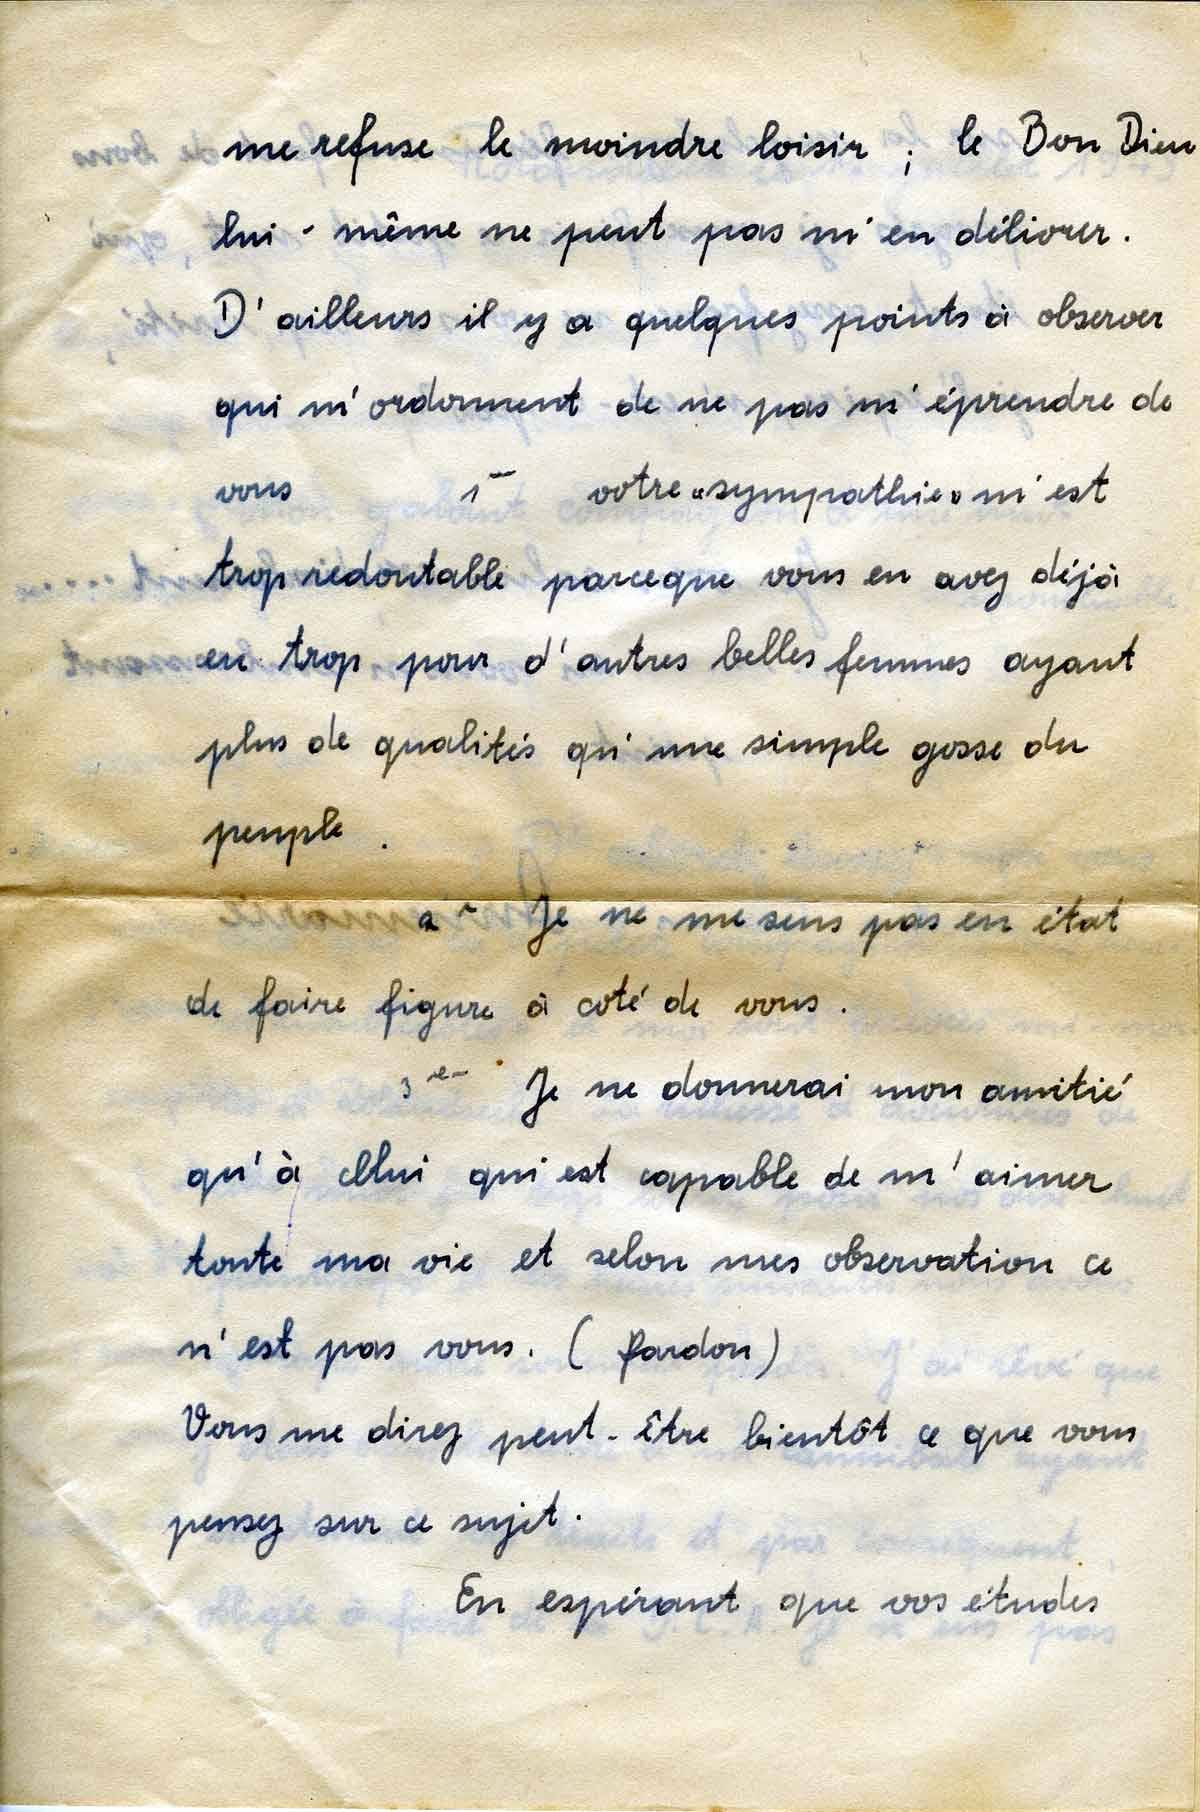 me refuse le moindre loisir ; le Bon Dieu
lui-même ne peut pas m'en délivrer.
D'ailleurs il y a quelques points à observer
qui m'ordonnent de ne pas m'éprendre de
vous 1— votre «sympathie» m'est
trop redoutable parceque vous en avez déjà
en trop pour d'autres belles femmes ayant
plus de qualités qu'une simple gosse du
peuple.
2- Je ne me sens pas en état
de faire figure à coté de vous.
3e- Je ne donnerai mon amitié
qu'à celui qui est capable de m'aimer
toute ma vie et selon mes observation ce
n'est pas vous. (Pardon)
Vous me direz peut-être bientôt ce que vous
pensez sur ce sujet.
En espérant que vos études